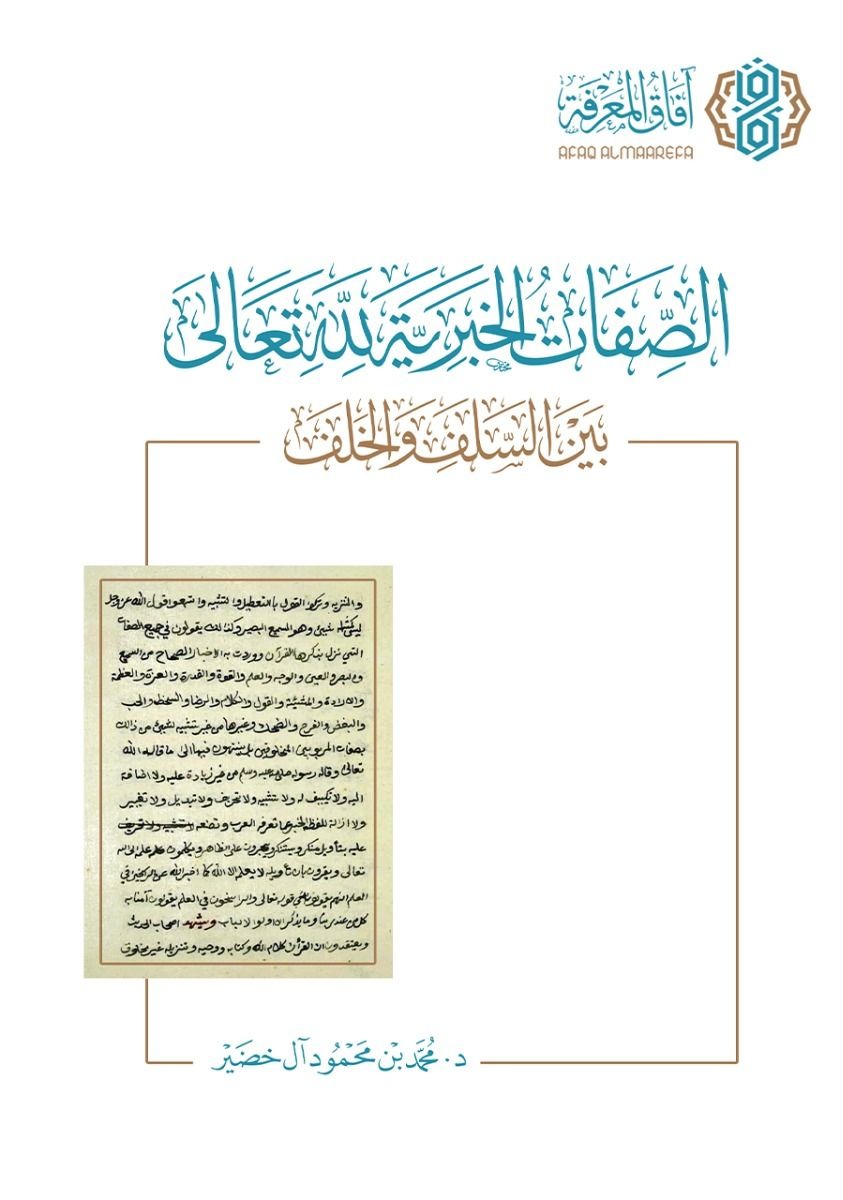 آفاق المعرفة
AFAQ ALMAAREFA
الصِّفَاتُ الخَبَرِيَّة لِلَّهِ تَعَالَى
بَيْنَ السَّلَفِ وَالخَلَفِ
والتنزيه وترك القول بالتعطيل والتشبيه واتبعوا قول الله عز وجل
ليس كمثله شيئ وهو السميع البصير وكذلك يقولون في جميع الصفات
التي نزل بذكرها القرآن ووردت به الاخبار الصحاح من السمع
والبصر والعين والوجه والعلم والقوة والقدرة والعزة والعظمة
والارادة والمشيئة والقول والكلام والرضا والسخط والحب
والبغض والفرح والضحك وغيرها من غير تشبيه لشيئ من ذالك
بصفات المربوبين المخلوقين بل ينتهون فيها الى ما قاله الله
تعالى وقاله رسوله صلى الله عليه وسلم من غير زيادة عليه ولا اضافة
اليه ولا تكييف له ولا تشبيه ولا تحريف ولا تبديل ولا تغيير
ولا ازالة للفظ الخبر عما تعرفه العرب وتضعه
عليه بتأويل منكر ويجرون على الظاهر ويكلون علمه الى الله
تعالى ويقرون بان تأويله لا يعلمه الا الله كما اخبر الله عن الراسخين في
العلم انهم يقولون في قوله تعالى والراسخون في العلم يقولون آمنا به
كل من عند ربنا وما يذكر الا اولوا الالباب ويشهد اصحاب الحديث
ويعتقدون ان القرآن كلام الله وكتابه ووحيه وتنزيله غير مخلوق
د. مُحَمَّد بْن مَحْمُود آل خضَيْر